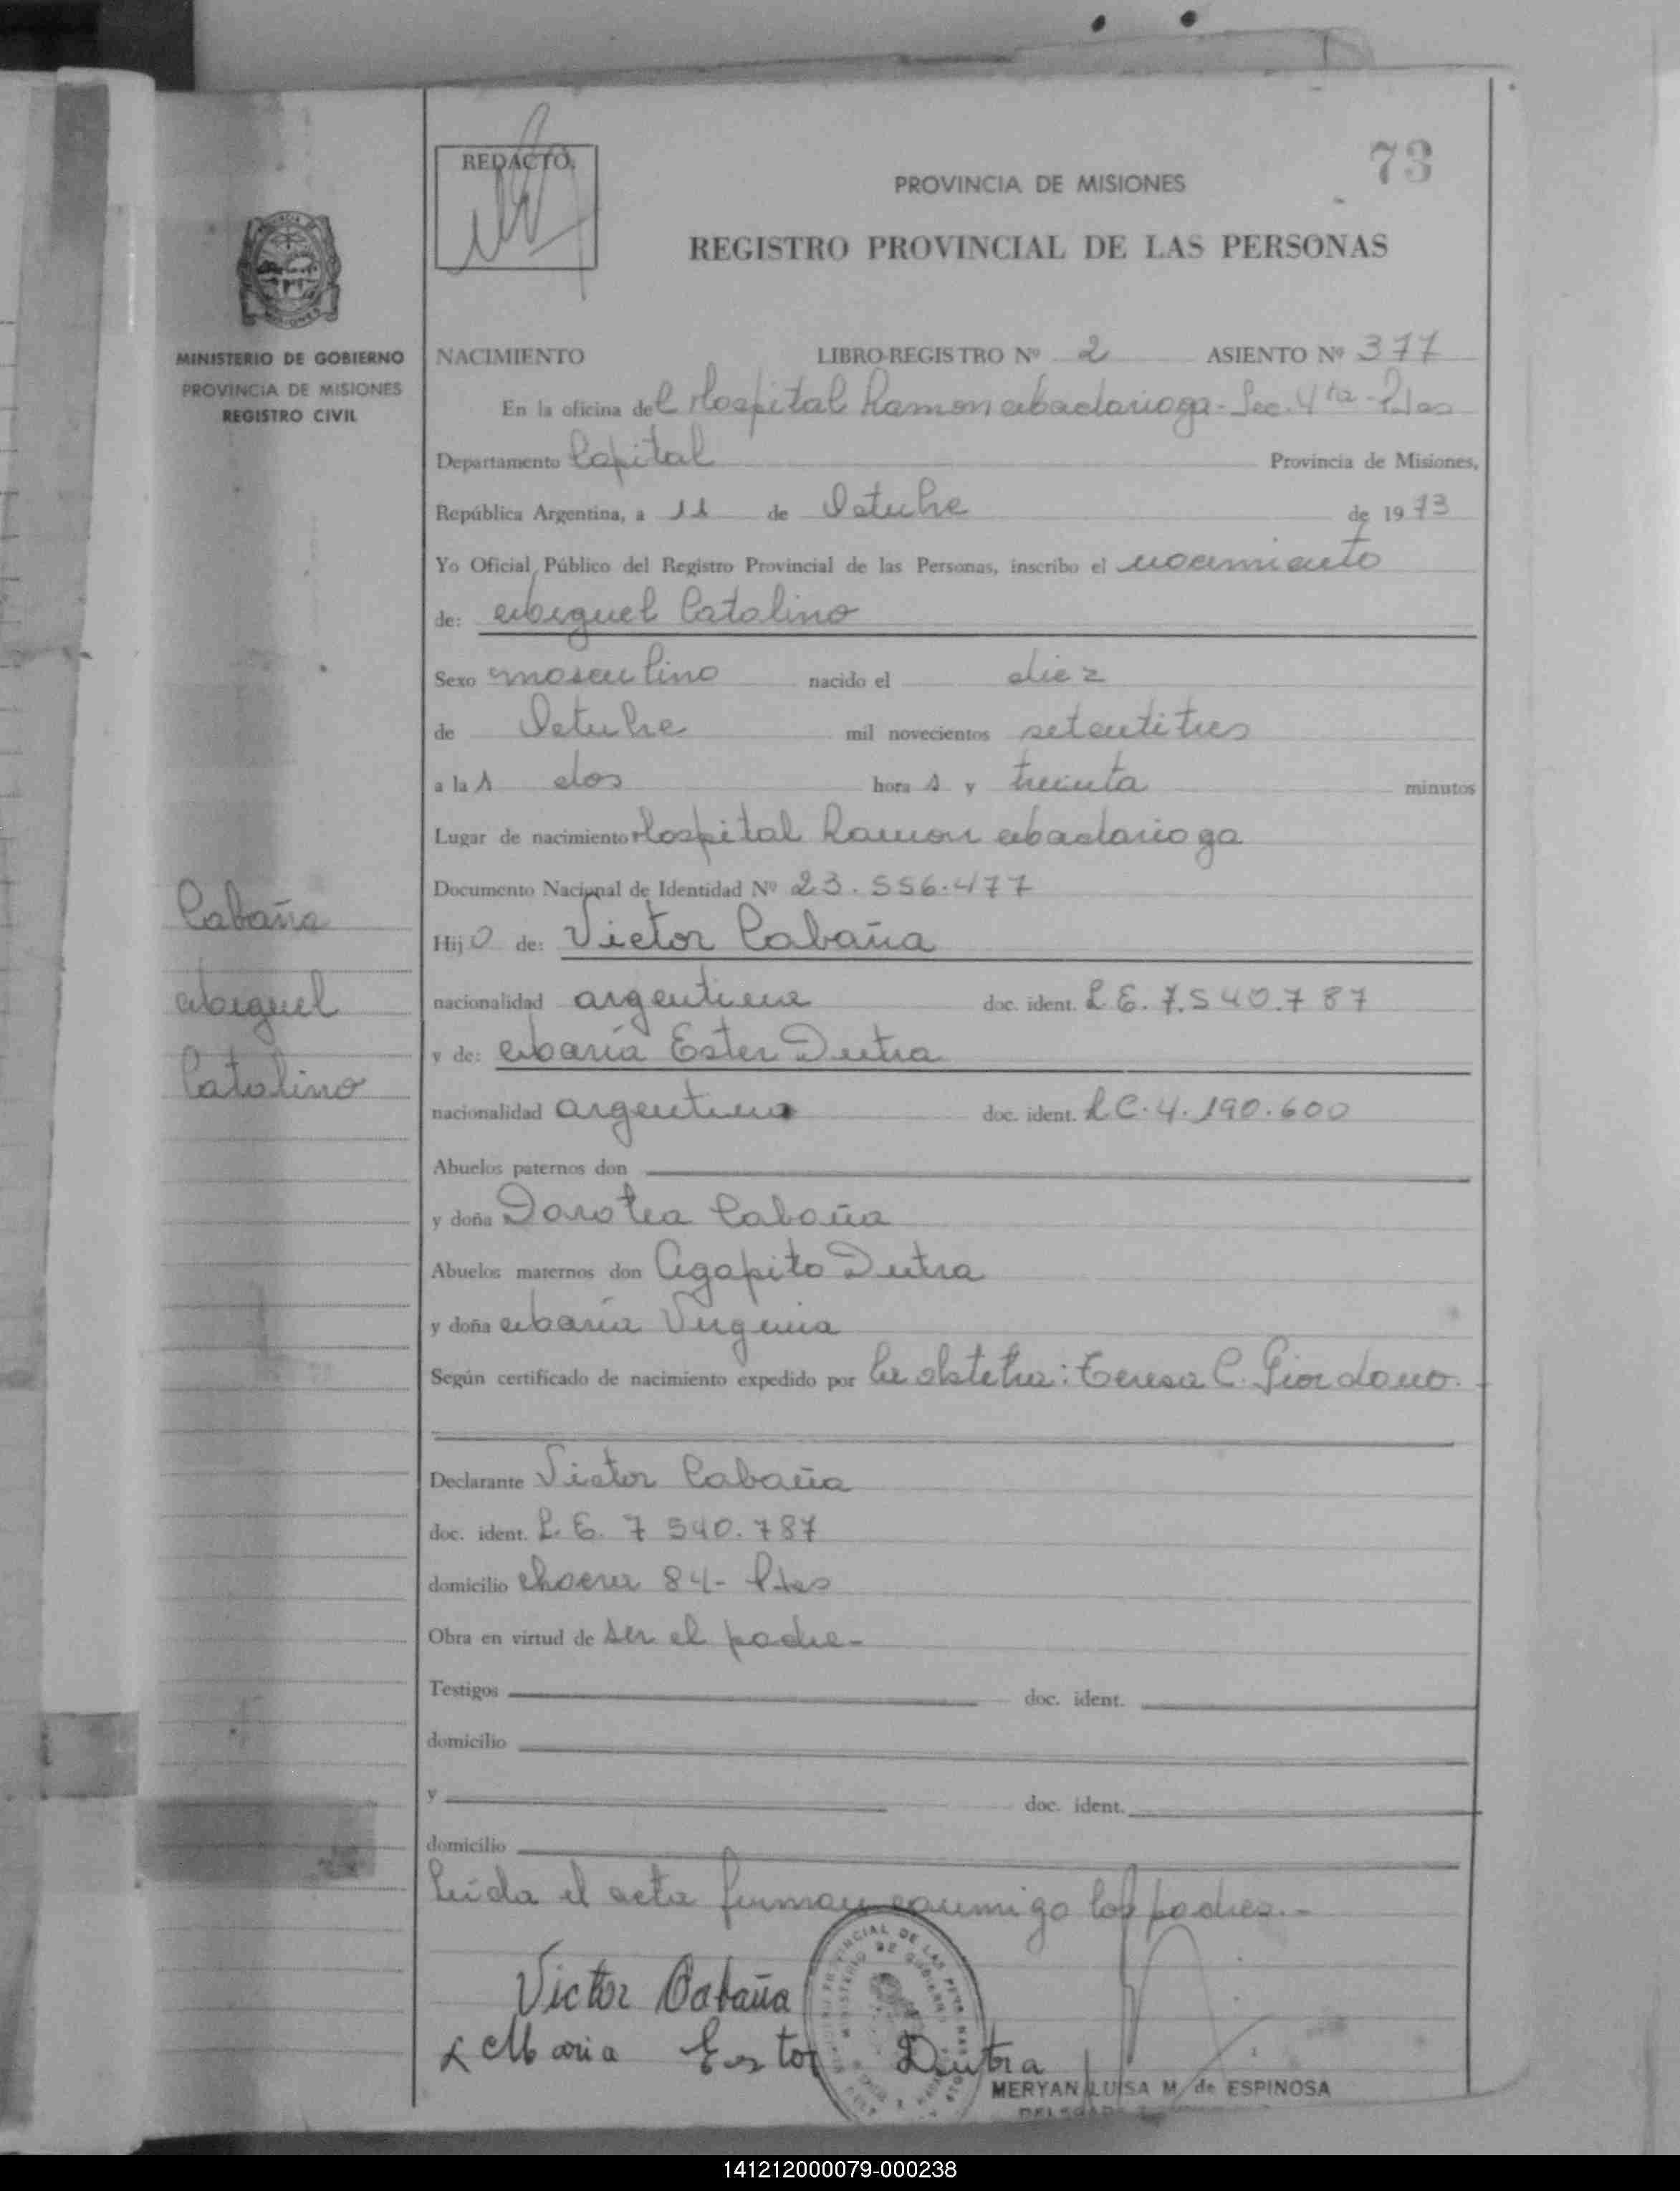 73
REDACTO.
PROVINCIA DE MISIONES
REGISTRO PROVINCIAL DE LAS PERSONAS
MINISTERIO DE GOBIERNO
PROVINCIA DE MISIONES
REGISTRO CIVIL
NACIMIENTO LIBRO-REGISTRO Nº 2 ASIENTO Nº 377
En la oficina del Hospital Ramon Madariaga - Sec. 4ta - Pdas
Departamento Capital Provincia de Misiones,
República Argentina, a 11 de Octubre de 1973
Yo Oficial Público del Registro Provincial de las Personas, inscribo el nacimiento
de: Miguel Catalino
Sexo masculino nacido el diez
de Octubre mil novecientos setentitres
a las dos horas y treinta minutos
Lugar de nacimiento Hospital Ramon Madariaga
Documento Nacional de Identidad Nº 23.556.477
Cabaña
Miguel
Catalino
Hijo de: Victor Cabaña
nacionalidad argentina doc. ident. L E. 7.540.787
y de: María Ester Dutra
nacionalidad argentina doc. ident. L C. 4.190.600
Abuelos paternos don
y doña Dorotea Cabaña
Abuelos maternos don Agapito Dutra
y doña María Virginia
Según certificado de nacimiento expedido por la obstetra: Teresa C. Giordano.
Declarante Victor Cabaña
doc. ident. L. E. 7 540.787
domicilio chacra 84 - Pdas
Obra en virtud de ser el padre -
Testigos doc. ident.
domicilio
y doc. ident.
domicilio
Leída el acta firman conmigo los padres. -
Victor Cabaña
x Maria Ester Dutra
MERYAN LUISA M. de ESPINOSA
141212000079-000238